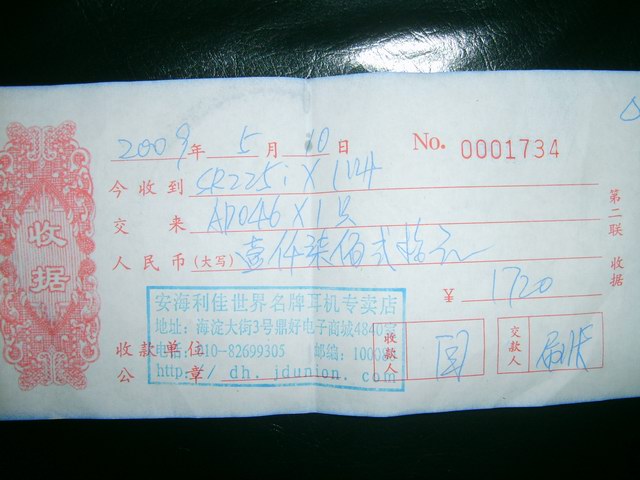 2009年 5月 10日 No. 0001734
今收到 SR225i X 1个
交来 AD046 X 1只
人民币(大写) 壹仟柒佰弍拾元
¥ 1720
第二联 收据
收据
安海利佳世界名牌耳机专卖店
地址: 海淀大街3号鼎好电子商城4840室
电话: 010-82699305 邮编: 10008
http://dh.jdunion.com
收款单位
公章
收款人
交款人